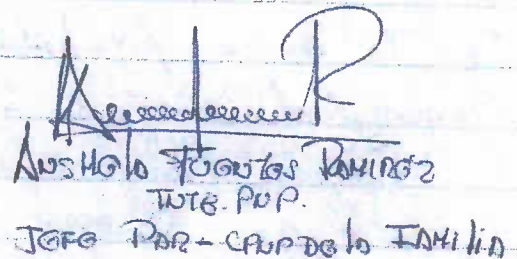 Anghelo Fuentes Ramirez
INTE. PNP.
Jefe Par - CPNP de la Familia